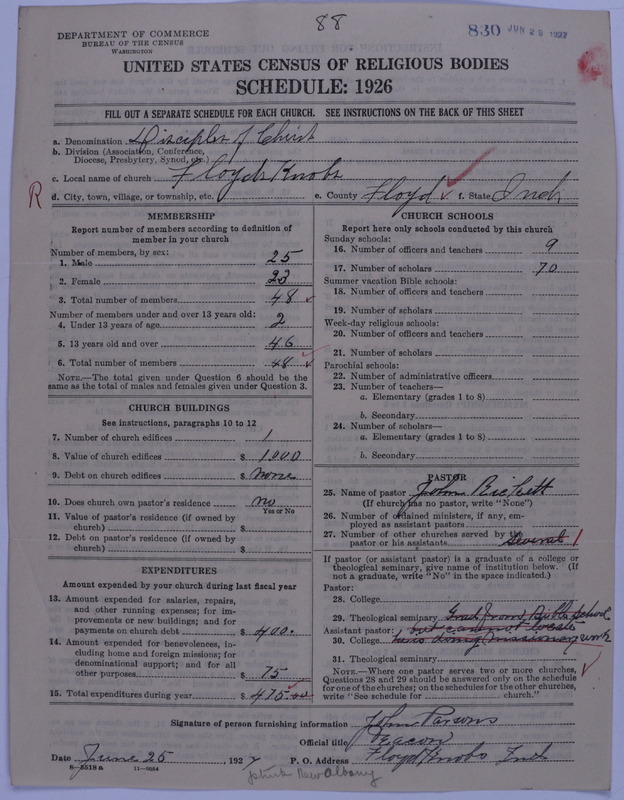 88
830 JUN 29 1927
DEPARTMENT OF COMMERCE
BUREAU OF THE CENSUS
WASHINGTON
UNITED STATES CENSUS OF RELIGIOUS BODIES
SCHEDULE: 1926
FILL OUT A SEPARATE SCHEDULE FOR EACH CHURCH. SEE INSTRUCTIONS ON THE BACK OF THIS SHEET
a. Denomination Disciples of Christ
b. Division (Association, Conference,
Diocese, Presbytery, Synod, etc.)
c. Local name of church Floyds Knobs
R d. City, town, village, or township, etc. e. County Floyd f. State Ind
MEMBERSHIP
Report number of members according to definition of
member in your church
Number of members, by sex:
1. Male 25
2. Female 23
3. Total number of members 48
Number of members under and over 13 years old:
4. Under 13 years of age 2
5. 13 years old and over 46
6. Total number of members 48
NOTE.—The total given under Question 6 should be
same as the total of males and females given under Question 3.
CHURCH BUILDINGS
See instructions, paragraphs 10 to 12
7. Number of church edifices 1
8. Value of church edifices $ 1000
9. Debt on church edifices $ none
10. Does church own pastor's residence no
Yes or No
11. Value of pastor's residence (if owned by
church) $
12. Debt on pastor's residence (if owned by
church) $
EXPENDITURES
Amount expended by your church during last fiscal year
13. Amount expended for salaries, repairs,
and other running expenses; for im-
provements or new buildings; and for
payments on church debt $ 400.
14. Amount expended for benevolences, in-
cluding home and foreign missions; for
denominational support; and for all
other purposes $ 75
15. Total expenditures during year $ 475.00
CHURCH SCHOOLS
Report here only schools conducted by this church
Sunday schools:
16. Number of officers and teachers 9
17. Number of scholars 70
Summer vacation Bible schools:
18. Number of officers and teachers
19. Number of scholars
Week-day religious schools:
20. Number of officers and teachers
21. Number of scholars
Parochial schools:
22. Number of administrative officers
23. Number of teachers—
a. Elementary (grades 1 to 8)
b. Secondary
24. Number of scholars—
a. Elementary (grades 1 to 8)
b. Secondary
PASTOR
25. Name of pastor John Rickett
(If church has no pastor, write "None")
26. Number of ordained ministers, if any, em-
ployed as assistant pastors
27. Number of other churches served by the
pastor or his assistants several 1
If pastor (or assistant pastor) is a graduate of a college or
theological seminary, give name of institution below. (If
not a graduate, write "No" in the space indicated.)
Pastor:
28. College
29. Theological seminary Grad from Bible School
Assistant pastor: but can not locate
30. College he is doing missionary work
31. Theological seminary
NOTE.—Where one pastor serves two or more churches,
Questions 28 and 29 should be answered only on the schedule
for one of the churches; on the schedules for the other churches,
write "See schedule for church."
Signature of person furnishing information John Parsons
Official title Deacon
Date June 25, 1927 P. O. Address Floyds Knobs Ind
8—5518 a 11—9054
New Albany